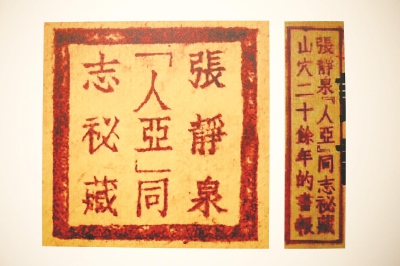 張靜泉
「人亞」同
志祕藏
張靜泉『人亞』同志祕藏
山穴二十餘年的書報